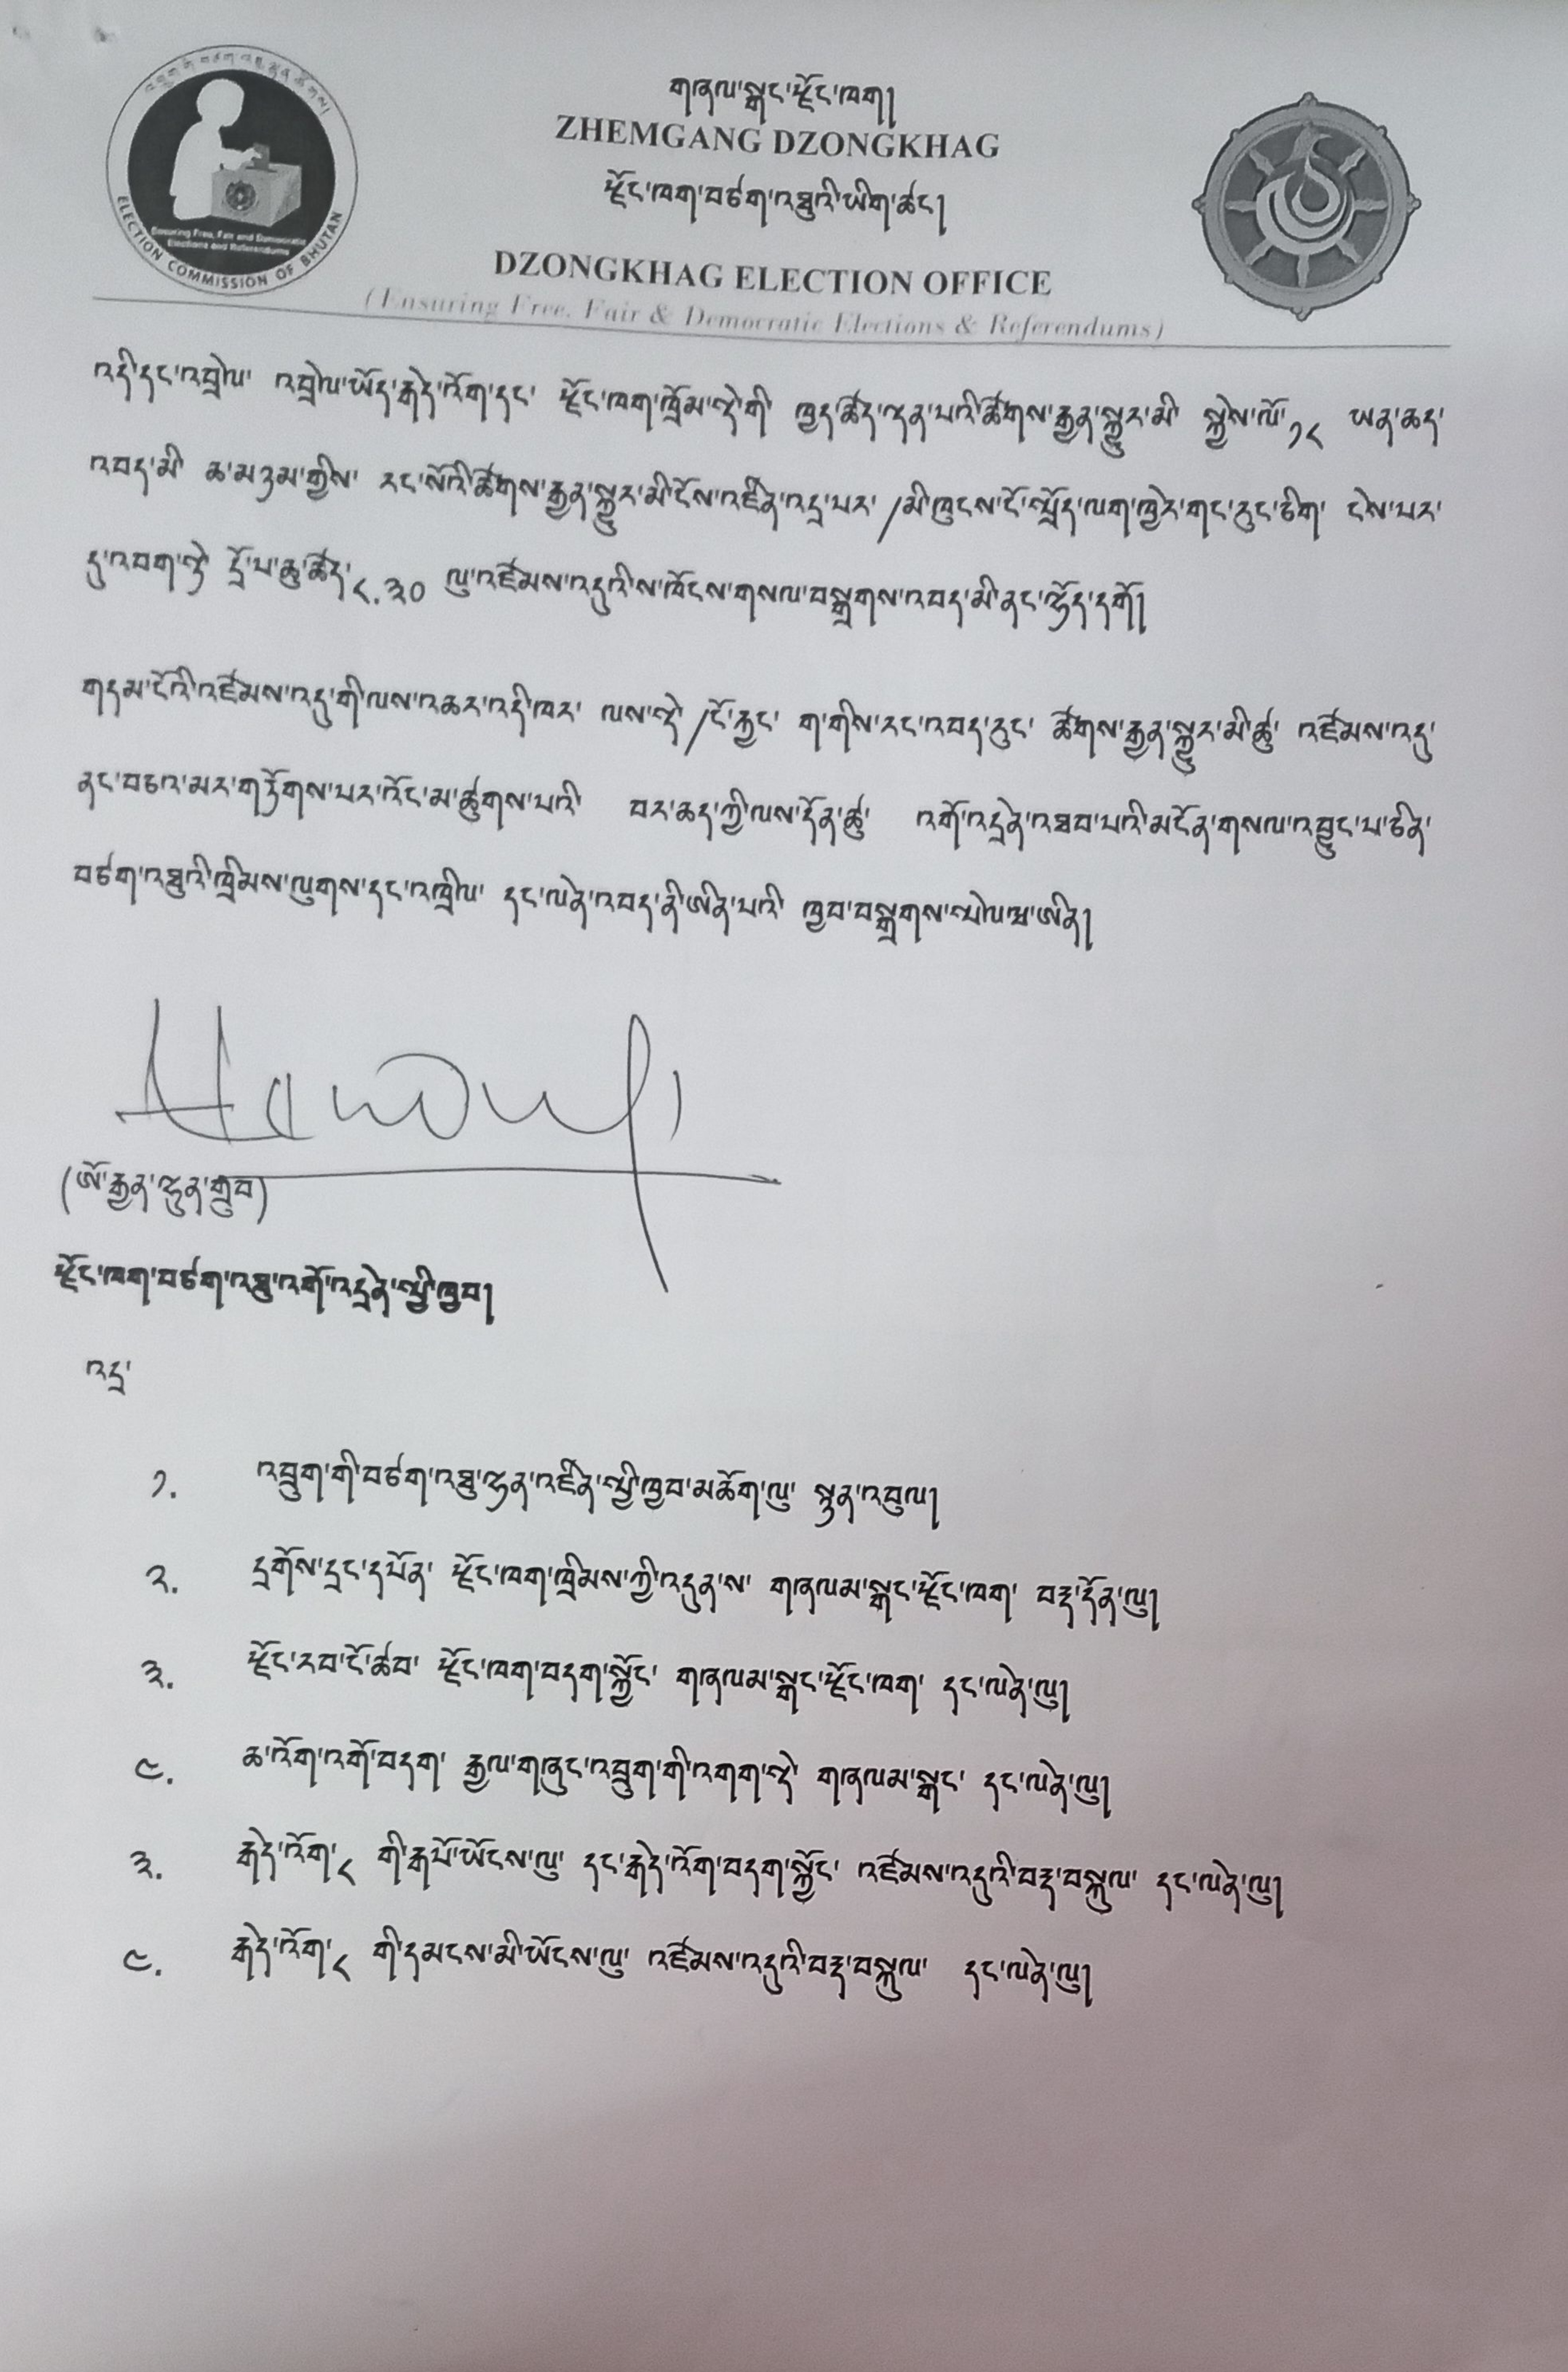 གཞལ་སྒང་རྫོང་ཁག།
ZHEMGANG DZONGKHAG
རྫོང་ཁག་བཙག་འཐུའི་ཡིག་ཚང།
DZONGKHAG ELECTION OFFICE
(Ensuring Free, Fair & Democratic Elections & Referendums)
Ensuring Free, Fair and Democratic
Elections and Referendums
ELECTION COMMISSION OF BHUTAN
འདི་དང་འབྲེལ་ འབྲེལ་ཡོད་རྒེད་འོག་དང་ རྫོང་ཁག་ཁྲོམ་སྡེ་གི་ ཁྱད་ཚད་ལྡན་པའི་ཚོགས་རྒྱན་སྐྱུར་མི་ སྐྱེས་ལོ་༡༨ ཡན་ཆད་
འབད་མི་ ཆ་མཉམ་གྱིས་ རང་སོའི་ཚོགས་རྒྱན་སྐྱུར་མི་ངོས་འཛིན་འདྲ་པར་/མི་ཁུངས་ངོ་སྤྲོད་ལག་ཁྱེར་གང་རུང་ཅིག་ ངེས་པར་
དུ་འབག་སྟེ་ དྲོ་པ་ཆུ་ཚོད་༨.༣༠ ལུ་འཛོམས་འདུའི་ས་ཁོངས་གསལ་བསྒྲགས་འབད་མི་ནང་ལྷོད་དགོ།
གདམ་ངོའི་འཛོམས་འདུ་གི་ལས་འཆར་འདི་ཁར་ ལས་སྡེ་/ངོ་རྐྱང་ ག་གིས་རང་འབད་རུང་ ཚོགས་རྒྱན་སྐྱུར་མི་ཚུ་ འཛོམས་འདུ་
ནང་བཅའ་མར་གཏོགས་པར་འོང་མ་ཚུགས་པའི་ བར་ཆད་ཀྱི་ལས་དོན་ཚུ་ འགོ་འདྲེན་འཐབ་པའི་མངོན་གསལ་འབྱུང་པ་ཅིན་
བཙག་འཐུའི་ཁྲིམས་ལུགས་དང་འཁྲིལ་ དང་ལེན་འབད་ནི་ཨིན་པའི་ ཁྱབ་བསྒྲགས་སྤེལ་ཕྱ་ཨིན།
(ཨོ་རྒྱན་ལྷུན་གྲུབ)
རྫོང་ཁག་བཙག་འཐུ་འགོ་འདྲེན་སྤྱི་ཁྱབ།
འདྲ་
༡. འབྲུག་གི་བཙག་འཐུ་ལྷན་འཛིན་སྤྱི་ཁྱབ་མཆོག་ལུ་ སྙན་འབུལ།
༢. དྲགོས་དྲང་དཔོན་ རྫོང་ཁག་ཁྲིམས་ཀྱི་འདུན་ས་ གཞལམ་སྒང་རྫོང་ཁག་ བརྡ་དོན་ལུ།
༣. རྫོང་རབ་ངོ་ཚབ་ རྫོང་ཁག་བདག་སྐྱོང་ གཞལམ་སྒང་རྫོང་ཁག་ དང་ལེན་ལུ།
༤. ཆ་འོག་འགོ་བདག་ རྒྱལ་གཞུང་འབྲུག་གི་འགག་སྡེ་ གཞལམ་སྒང་ དང་ལེན་ལུ།
༣. རྒེད་འོག་༨ གི་རྒཔོ་ཡོངས་ལུ་ དང་རྒེད་འོག་བདག་སྐྱོང་ འཛོམས་འདུའི་བརྡ་བསྐུལ་ དང་ལེན་ལུ།
༤. རྒེད་འོག་༨ གི་དམངས་མི་ཡོངས་ལུ་ འཛོམས་འདུའི་བརྡ་བསྐུལ་ དང་ལེན་ལུ།